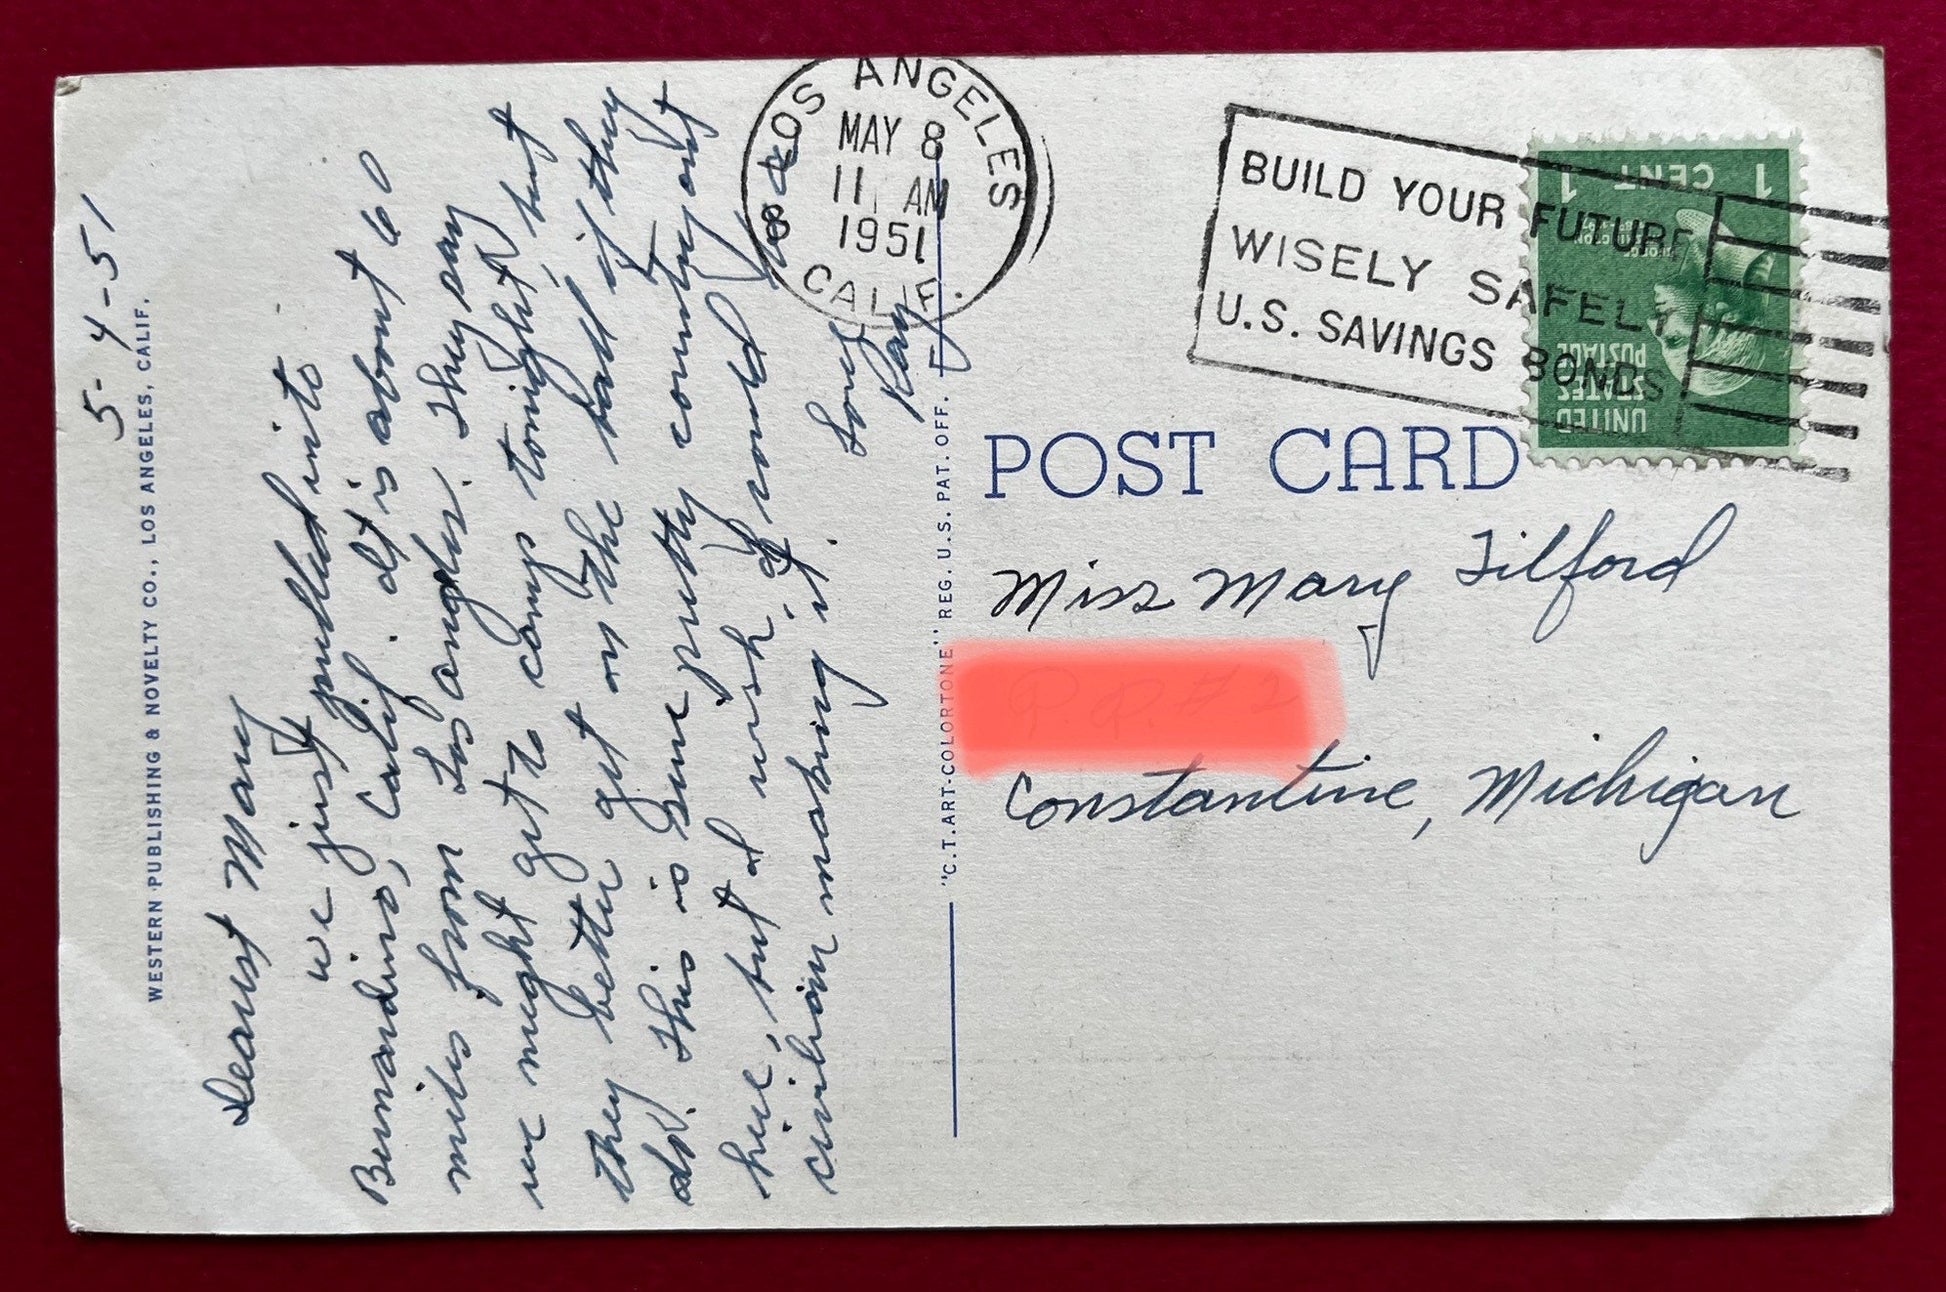 5-4-51
Dearest Mary
we just pulled into
Bernardino, Calif. It is about 60
miles from Los angeles. They say
we might get to camp tonight, but
they better get on the ball if they
do. This is sure pretty country out
here, but I wish I would
civilian making it.
Love
Ray
WESTERN PUBLISHING & NOVELTY CO., LOS ANGELES, CALIF.
"C.T. ART-COLORTONE" REG. U.S. PAT. OFF.
LOS ANGELES
MAY 8
11 AM
1951
CALIF.
BUILD YOUR FUTURE
WISELY SAFELY
U.S. SAVINGS BONDS
1 CENT 1
UNITED
STATES
POSTAGE
POST CARD
Miss Mary Tilford
Constantine, Michigan